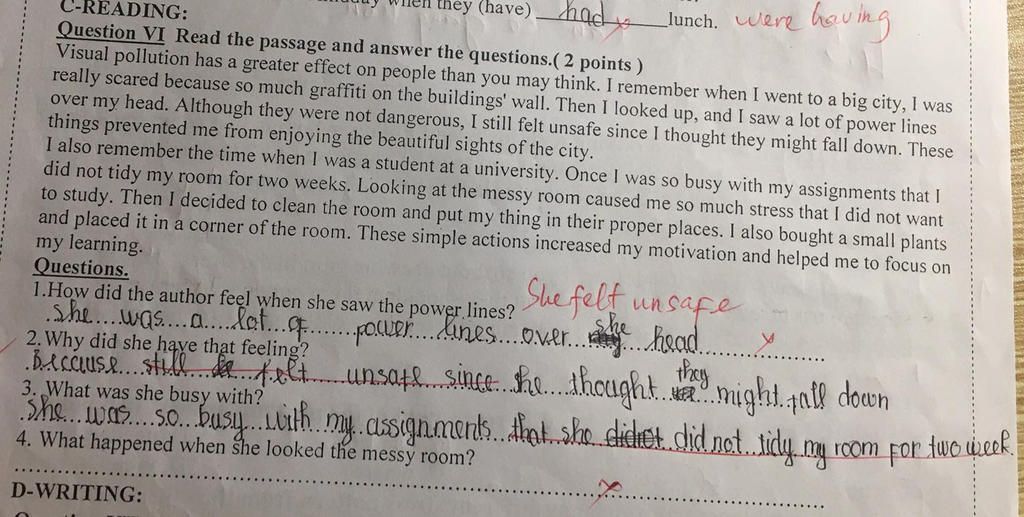 when they (have) had lunch. were having
C-READING:
Question VI Read the passage and answer the questions.( 2 points )
Visual pollution has a greater effect on people than you may think. I remember when I went to a big city, I was
really scared because so much graffiti on the buildings' wall. Then I looked up, and I saw a lot of power lines
over my head. Although they were not dangerous, I still felt unsafe since I thought they might fall down. These
things prevented me from enjoying the beautiful sights of the city.
I also remember the time when I was a student at a university. Once I was so busy with my assignments that I
did not tidy my room for two weeks. Looking at the messy room caused me so much stress that I did not want
to study. Then I decided to clean the room and put my thing in their proper places. I also bought a small plants
and placed it in a corner of the room. These simple actions increased my motivation and helped me to focus on
my learning.
Questions.
1.How did the author feel when she saw the power lines? She felt unsafe
She was a lot of power lines over she head
2. Why did she have that feeling?
Because still felt unsafe since she thought they might fall down
3. What was she busy with?
She was so busy with my assignments that she did not tidy my room for two week
4. What happened when she looked the messy room?
D-WRITING: